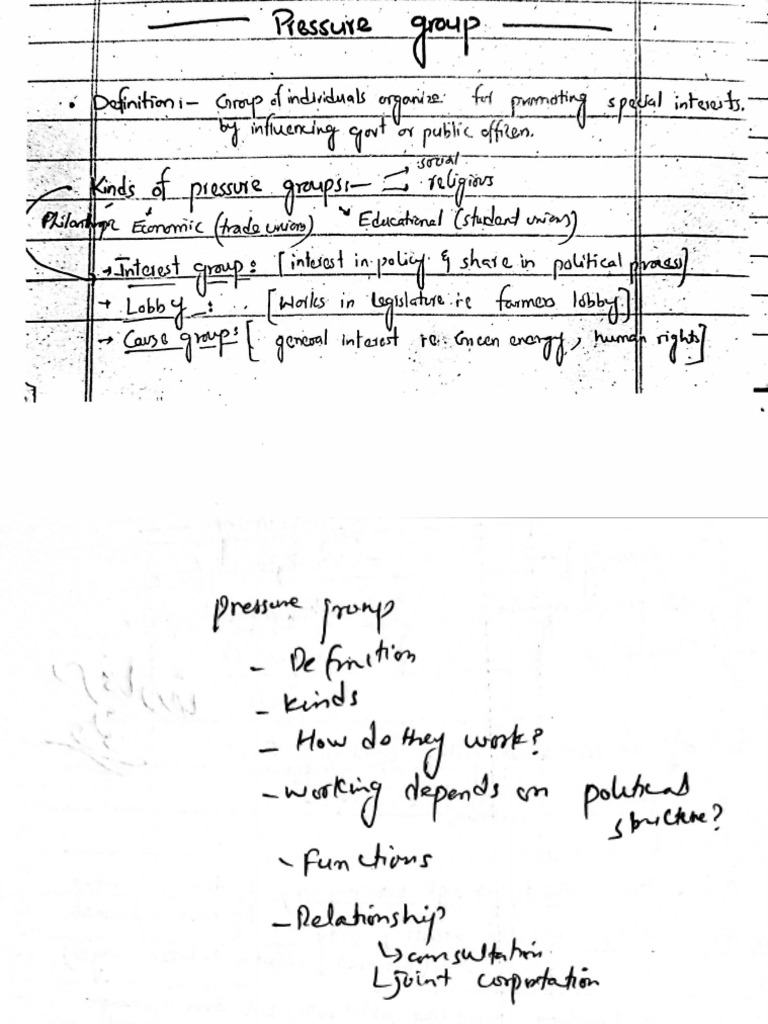 Pressure group
• Definition:- Group of individuals organize for promoting special interests.
by influencing govt or public officers.
social
• Kinds of pressure groups:- religious
Economic (trade unions) Educational (student unions)
→ Interest group: [interest in policy & share in political process]
→ Lobby : [works in legislature ie farmers lobby]
→ Cause group: [general interest ie Green energy, human rights]
Pressure group
- Definition
- Kinds
- How do they work?
- working depends on political
structure?
- Functions
- Relationship
↳ consultation
↳ joint corportation